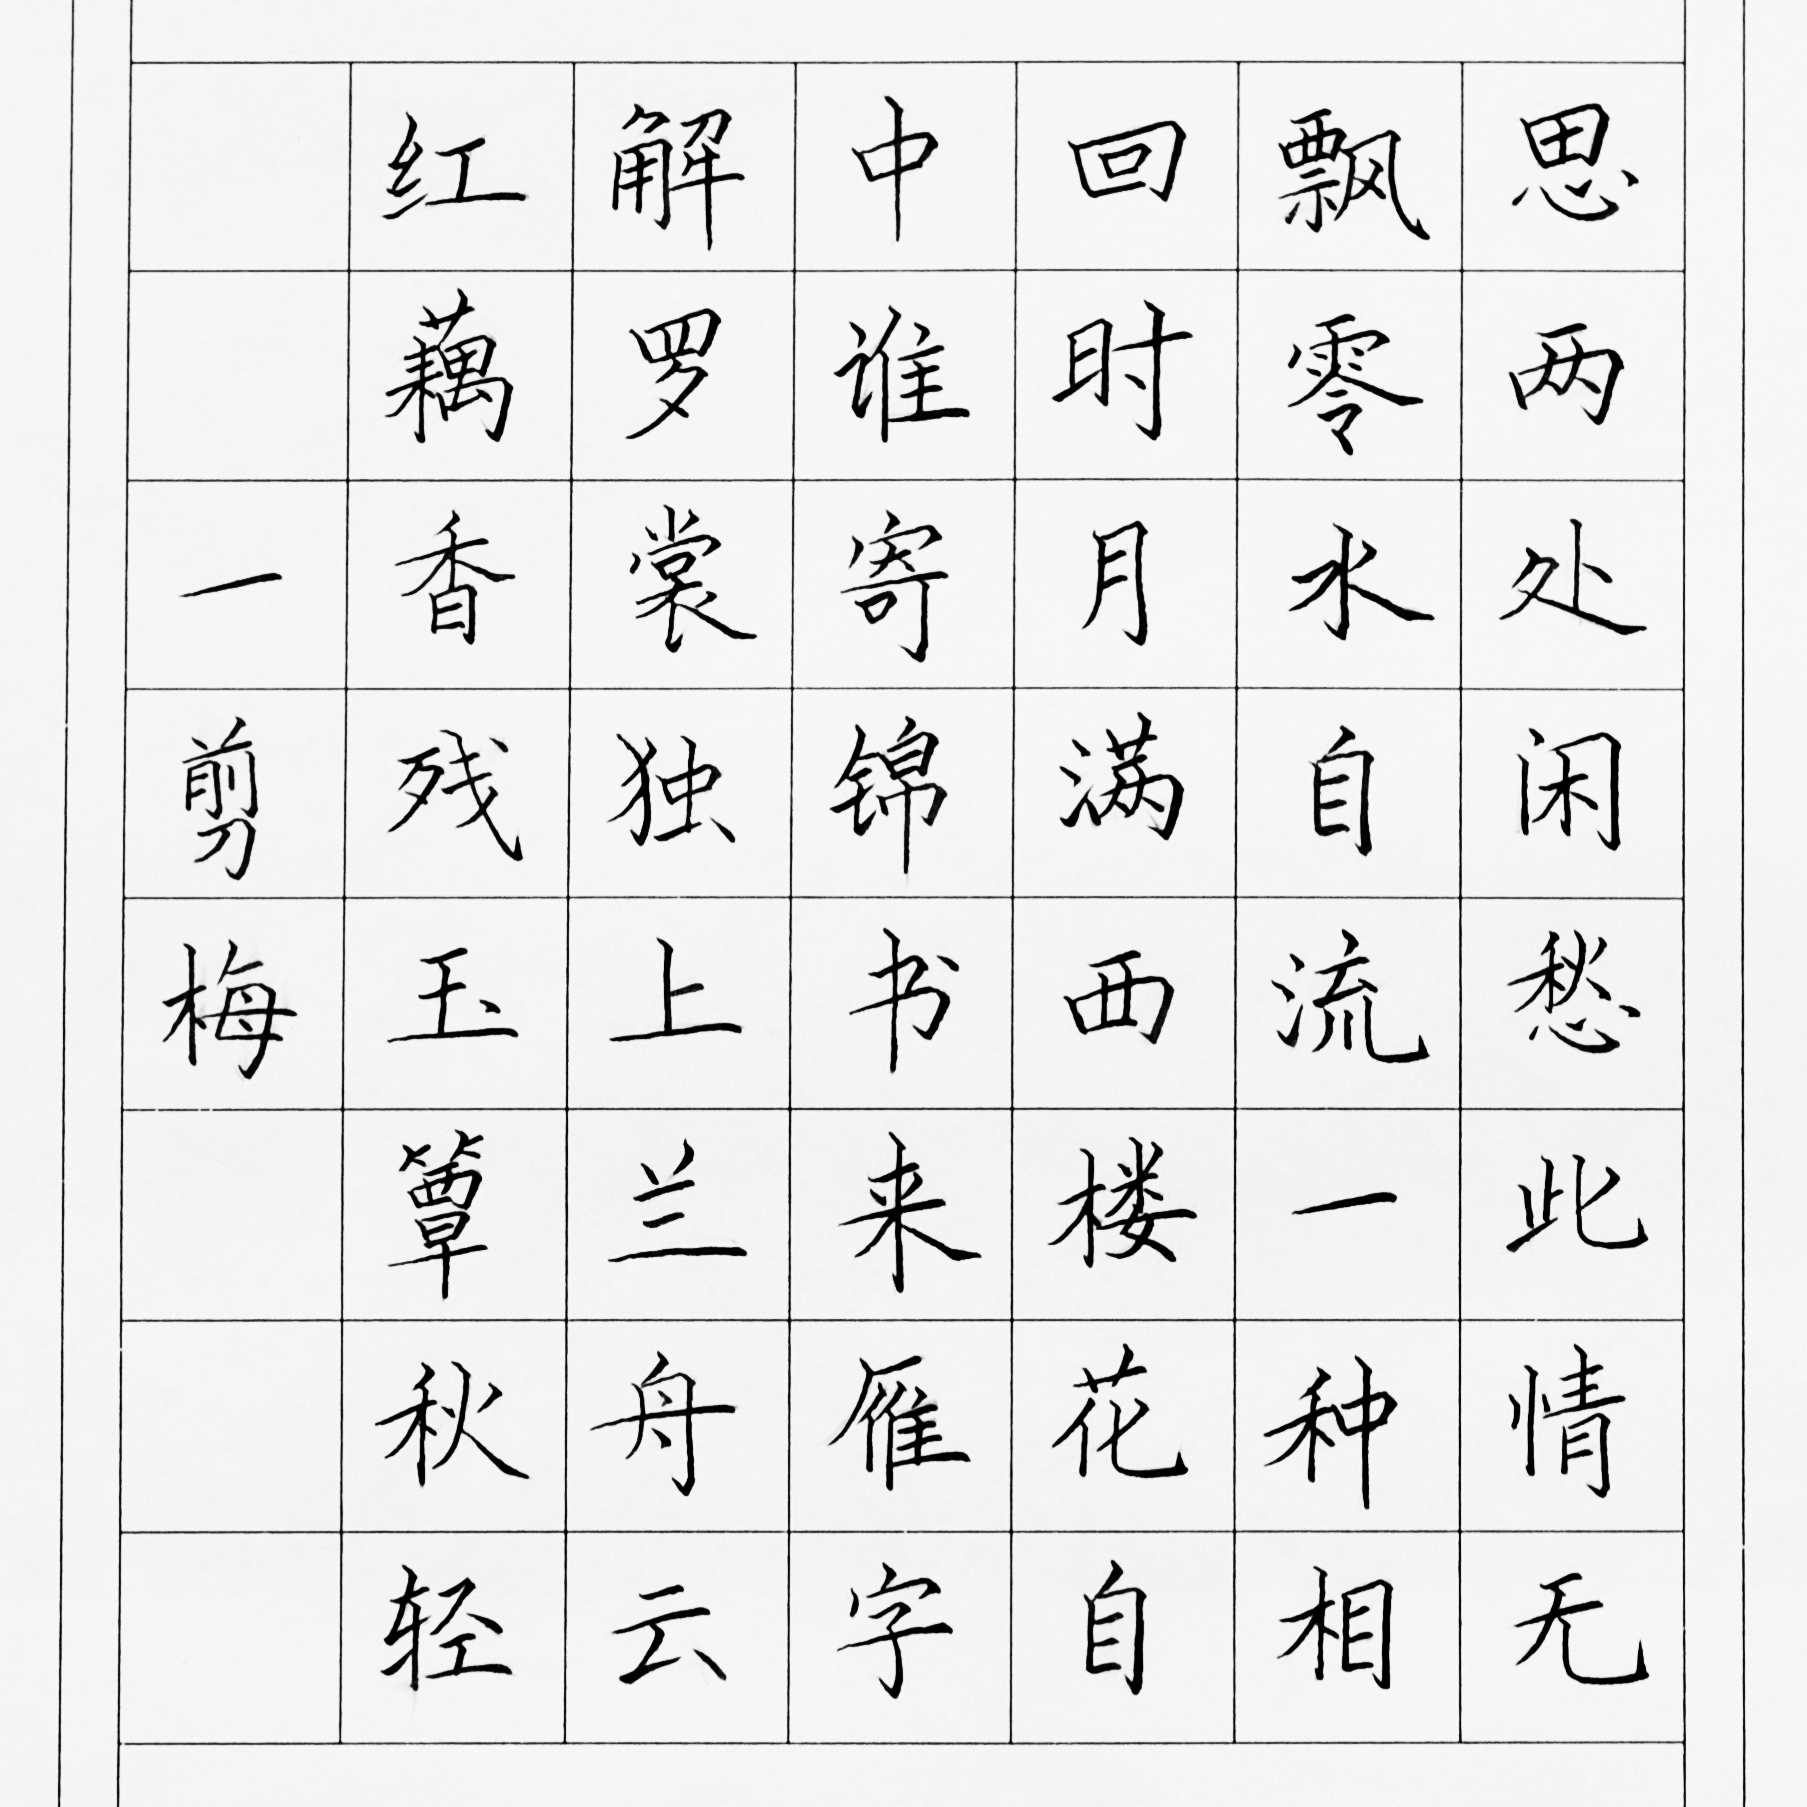 一剪梅
红藕香残玉簟秋轻
解罗裳独上兰舟云
中谁寄锦书来雁字
回时月满西楼花自
飘零水自流一种相
思两处闲愁此情无